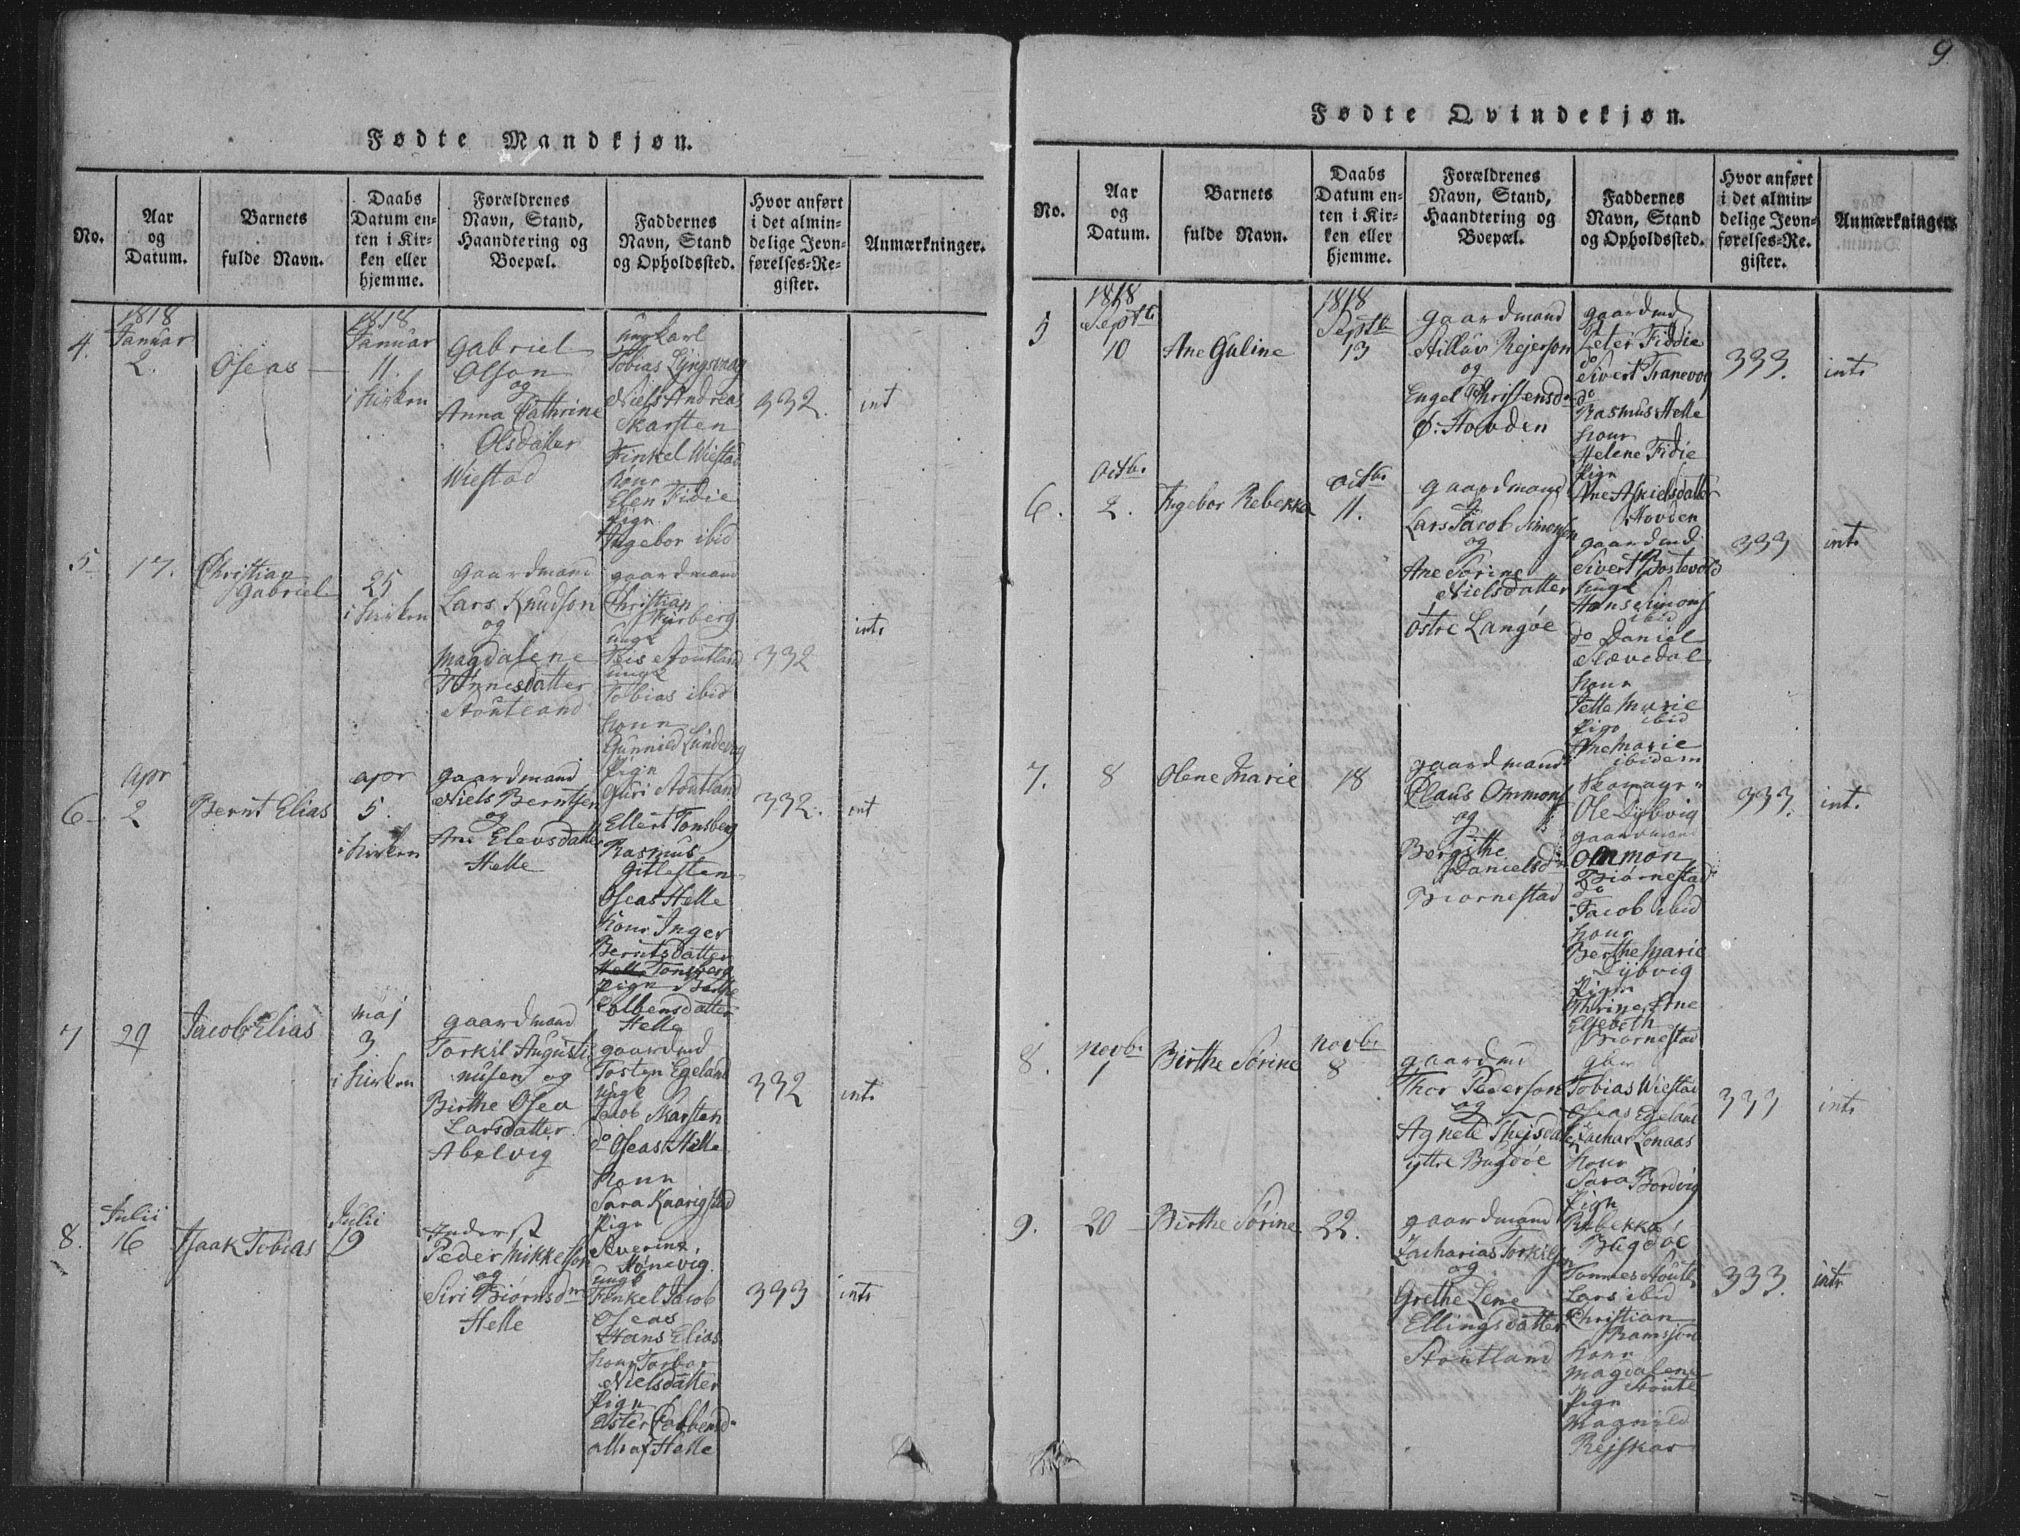 Fødte Mandkjøn.
No.
Aar
og
Datum.
Barnets
fulde Navn.
Daabs
Datum en-
ten i Kir-
ken eller
hjemme.
Forældrenes
Navn, Stand,
Haandtering og
Boepæl.
Faddernes
Navn, Stand
og Opholdssted.
Hvor anført
i det almin-
delige Jevn-
førelses-Re-
gister.
Anmærkninger.
4.
1818
Januar
2.
Oseas
1818
Januar
11.
i Kirken
Gabriel
Olson
og
Anna Cathrine
Olsdatter
Wiestad
ungkarl
Tobias Lyngsvaag
Niels Andreas
Skarsten
Finkel Wiestad
Konr
Elen Fidie
Pign
Ingebor ibid
332.
int
5
17.
Christian
Gabriel
25
i Kirken
gaardmand
Lars Knudson
og
Magdalene
Tønnesdatter
Stoutland
gaardmand
Christian
ungk
Teis Stoutland
ungk
Tobias ibid
Konn
Gunnild Lundevog
Pign
Guri Stoutland
332
int
6
apr
2
Bernt Elias
apr
5.
i Kirken
gaardmand
Niels Berntsen
og
Ane Elevsdatter
Helle
Ellert Tonsberg
Rasmus
Gitlesten
Oseas Helle
Konr Inger
Berntsdatter
Tonsberg
Pign Berthe
Colbensdatter
Helle
332.
int
7
29
Jacob Elias
maj
3.
i Kirken
gaardmand
Torkil Augusti
nusen og
Birthe Osea
Larsdatter
Abelvig
gaardmd
Tosten Egeland
ungk
Jacob Skarsten
do Oseas Helle
Konn
Sara Kaarigstad
Pign
Severine
Stønevig
332
int
8.
Julii
16
Isaak Tobias
Julii
19
Inderst
Peder Mikkelson
og
Siri Biørnsdr
Helle
ungk
Finkel Jacob
Oseas
Hans Elias
Konr Torbor
Nielsdatter
Pign
Ester Colbensd
alle af Helle
333
int
9.
Fødte Qvindekjøn.
No.
Aar
og
Datum.
Barnets
fulde Navn.
Daabs
Datum en-
ten i Kir-
ken eller
hjemme.
Forældrenes
Navn, Stand,
Haandtering og
Boepæl.
Faddernes
Navn, Stand
og Opholdssted.
Hvor anført
i det almin-
delige Jevn-
førelses-Re-
gister.
Anmærkninger.
5
1818
Septb
10
Ane Guline
1818
Septb
13
gaardmand
Stillav Rejerson
og
Engel Thrissensdr
Hovden
gaardmd
Peter Fiddie
do
Sivert Tranevog
do
Rasmus Helle
Konr
Helene Fidie
Pign
Ane Askielsdatter
Hovden
333.
int
6.
octbr
2.
Ingebor Rebekka
octbr
11.
gaardmand
Lars Jacob Simonsen
og
Ane Sørine
Nielsdatter
østre Langøe
gaardmd
Sivert Bostevold
ungk
Hans Simons
ibid
do Daniel
Stævedal
Konr
Jelle Marie
ibid
Pign
Ane Marie
ibidem
333
int
7.
8
Olene Marie
18
gaardmand
Claus Ommons
og
Bergithe
Danielsdr
Biørnestad
Skomagr
Ole Dybvig
gaardmand
Ommon
Biørnestad
do
Jacob ibid
Konr
Berthe Marie
Dybvig
Pign
Thrine, Ane
Elsebeth
Biørnestad
333.
int
8.
novbr
1
Birthe Sørine
novbr
8
gaardmd
Thor Pederson
og
Agnete Theisdatter
yttre Bugdøe
gbr
Tobias Wiestad
Oseas Egeland
Zachar Lonaas
Konr
Sara Bordvig
Pign
Rebekka
Bugdøe
333
int
9.
20
Birthe Sørine
22.
gaardmand
Zacharias Torkilsen
og
Grethe Lene
Ellingsdatter
Stoutland
Tonnes Stoutl
Lars ibid
Christian
Ramsjon
Konr
Magdalene
Stoutl
Pign
Magnild
Rejskar
333.
int